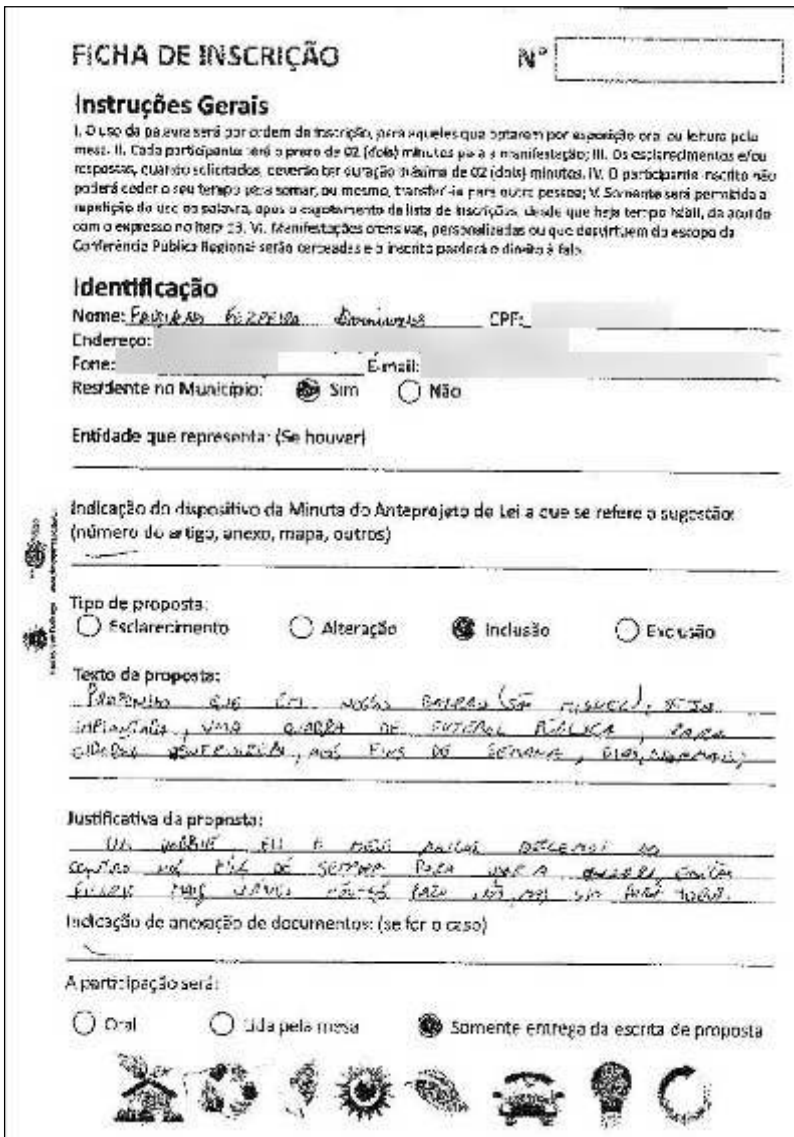 FICHA DE INSCRIÇÃO Nº
Instruções Gerais
I. O uso da palavra será por ordem de inscrição, para aqueles que optarem por exposição oral ou leitura pela
mesa. II. Cada participante terá o prazo de 02 (dois) minutos para a manifestação; III. Os esclarecimentos e/ou
respostas, quando solicitados, deverão ter duração máxima de 02 (dois) minutos. IV. O participante inscrito não
poderá ceder o seu tempo para somar, ou mesmo, transferi-lo para outra pessoa; V. Somente será permitida a
repetição do uso da palavra, após o esgotamento da lista de inscrições, desde que haja tempo hábil, de acordo
com o expresso no item 13. VI. Manifestações ofensivas, personalizadas ou que desvirtuem do escopo da
Conferência Pública Regional serão cerceadas e o inscrito perderá o direito à fala.
Identificação
Nome: CPF:
Endereço:
Fone: E-mail:
Residente no Município: Sim Não
Entidade que representa: (Se houver)
Indicação do dispositivo da Minuta do Anteprojeto de Lei a que se refere a sugestão:
(número do artigo, anexo, mapa, outros)
Tipo de proposta:
Esclarecimento Alteração Inclusão Exclusão
Texto da proposta:
QUE EM NOSSO BAIRRO (SÃO MIGUEL), SEJA
IMPLANTADA, UMA QUADRA DE FUTEBOL PÚBLICA, PARA
NOS FINS DE SEMANA,
Justificativa da proposta:
EU E MEUS AO
CENTRO NOS FINS DE SEMANA PARA A
MAIS SÓ PARA NÓS, MAS SIM PARA TODOS.
Indicação de anexação de documentos: (se for o caso)
A participação será:
Oral Lida pela mesa Somente entrega da escrita de proposta